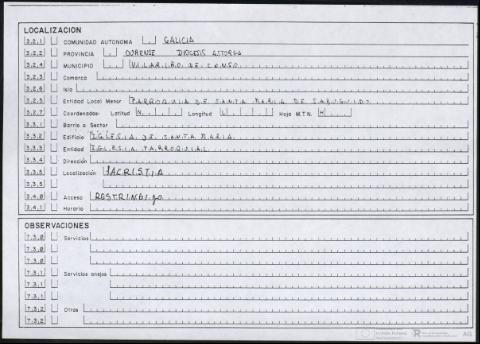 LOCALIZACION
3.2.1 COMUNIDAD AUTONOMA GALICIA
3.2.2 PROVINCIA OURENSE DIOCESIS ASTORGA
3.2.4 MUNICIPIO VILARIÑO DE CONSO
3.2.3 Comarca
3.2.6 Isla
3.2.5 Entidad Local Menor PARROQUIA DE SANTA MARIA DE
3.2.7 Coordenadas: Latitud N Longitud Hoja M.T.N.
3.3.1 Barrio o Sector
3.3.2 Edificio IGLESIA DE SANTA MARIA
3.3.3 Entidad IGLESIA PARROQUIAL
3.3.4 Dirección
3.3.5 Localización SACRISTIA
3.3.5
3.4.0 Acceso RESTRINGIDO
3.4.1 Horario
OBSERVACIONES
7.3.0 Servicios
7.3.0
7.3.0
7.3.1 Servicios anejos
7.3.1
7.3.1
7.3.2 Otros
7.3.2